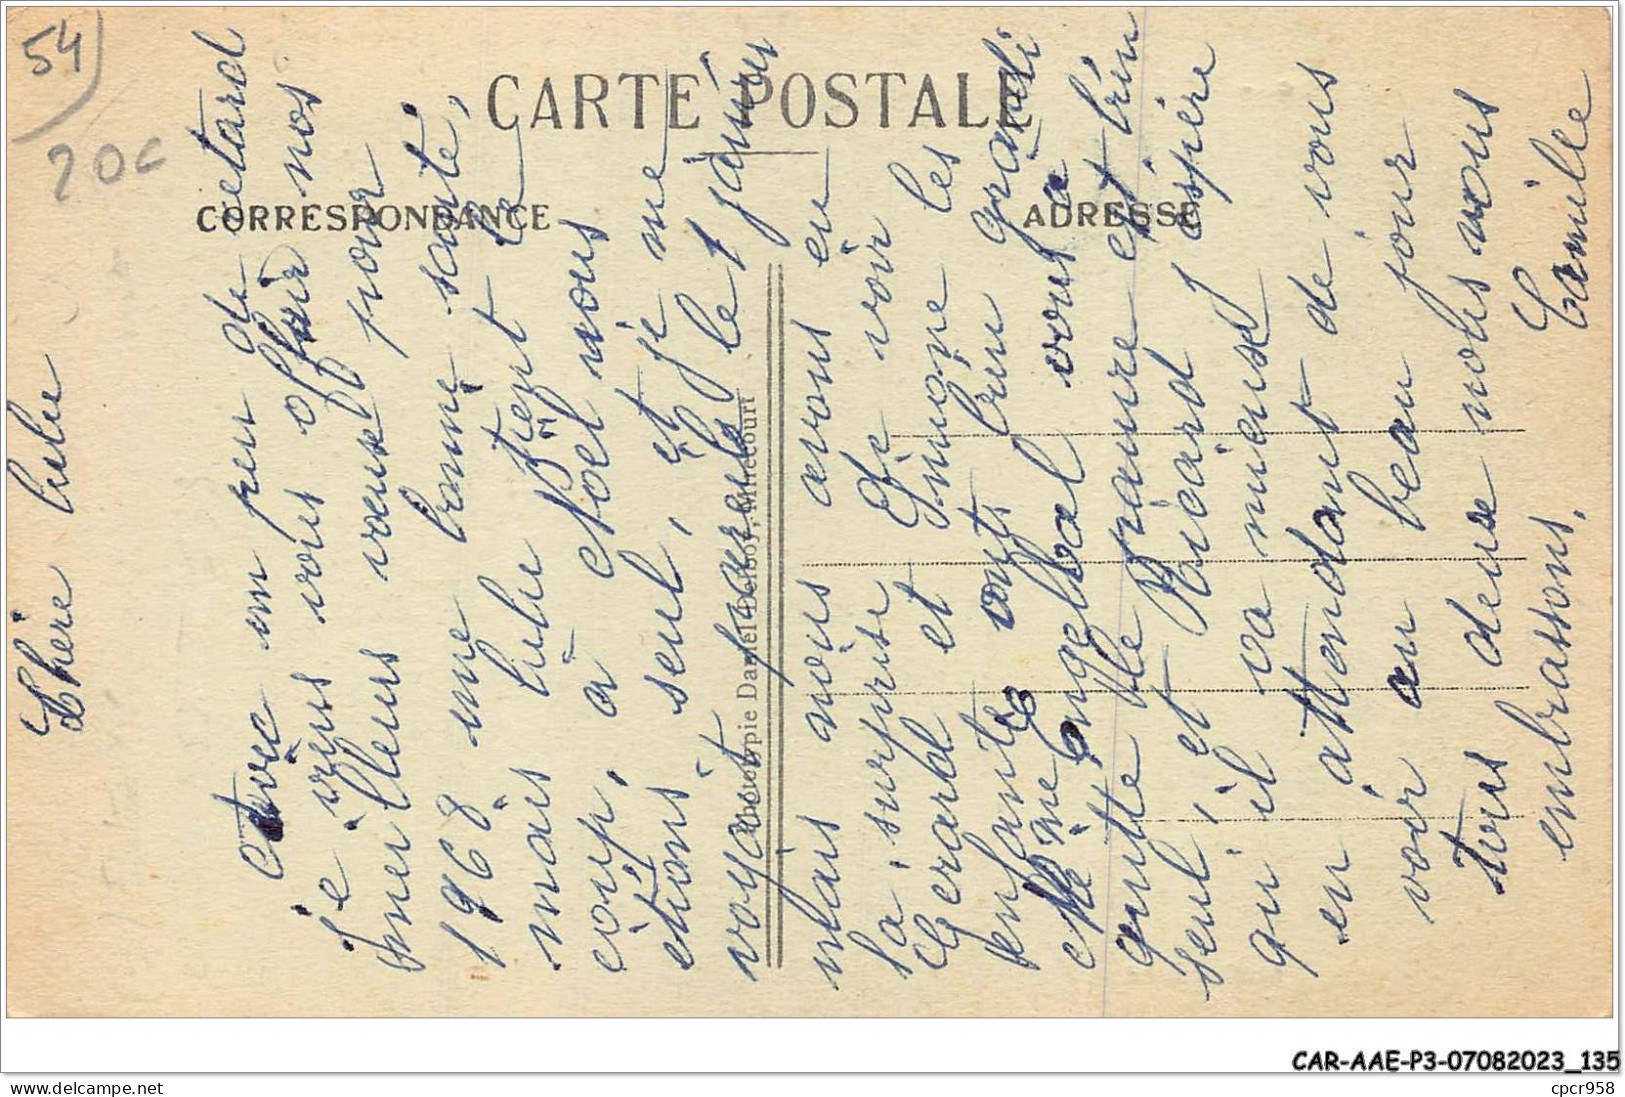 54
20c
CARTE POSTALE
CORRESPONDANCE
ADRESSE
Phototypie Daniel Delboy, Mirecourt
Chère lulu
Avec un peu de retard
je viens vous offrir nos
meilleurs voeux pour
1968 une bonne santé,
mais lulu tient le
coup, à Noel nous
étions seul, et je me
voyait pareil le 1 janvier
mais nous avons eu
la surprise de voir les
Gérard et Simone les
enfants ont bien grandi
Me Engelbal vous a
quitté le pauvre est bien
seul, et Ricard j espère
qu'il va mieux
en attendant de vous
voir au beau jour
tous deux nous vous
embrassons,
Camille
CAR-AAE-P3-07082023_135
https://www.delcampe.net
cpcr958